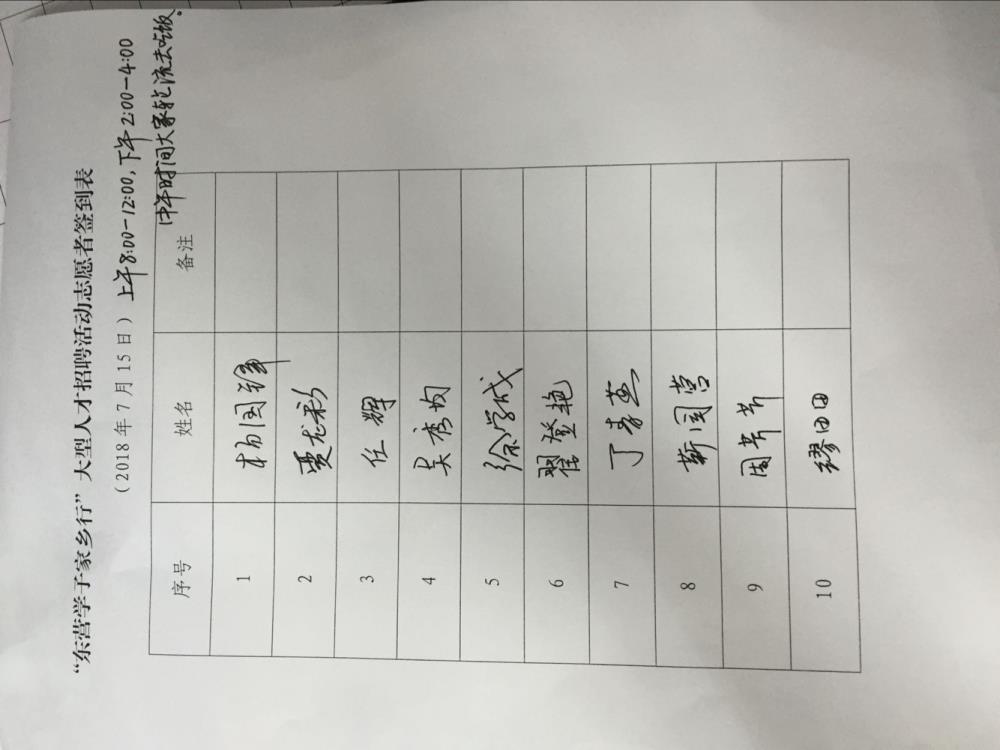 “东营学子家乡行”大型人才招聘活动志愿者签到表
（2018年7月15日） 上午8:00-12:00,下午2:00-4:00
中午时间大家轮流去吃饭。
序号 姓名 备注
1 杨国锋
2 贾龙彩
3 任辉
4 吴秀均
5 徐学成
6 翟登艳
7 丁春燕
8 靳国营
9 周芳芳
10 缪田田